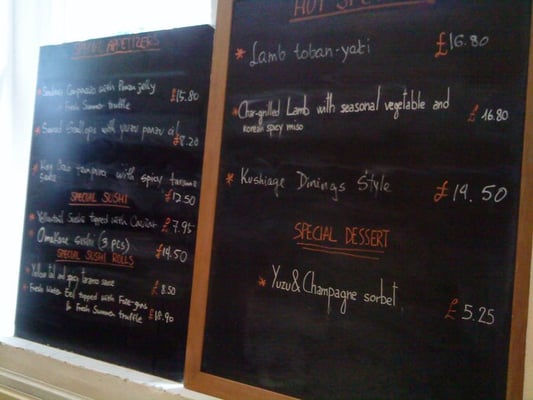 SPECIAL APPETIZERS
* Carpaccio with Ponzu jelly
Fresh Summer truffle £15.80
* Scallops with yuzu ponzu £8.20
* with spicy
£12.50
SPECIAL SUSHI
* Yellowtail Sushi topped with Caviar £7.95
* Omakase sushi (3 pcs) £14.50
SPECIAL SUSHI ROLLS
* Yellow tail and spicy sauce £8.50
* Fresh Water Eel topped with
& Fresh Summer truffle
HOT
* Lamb toban-yaki £16.80
* Char-grilled Lamb with seasonal vegetable and
korean spicy miso £16.80
* Kushiage Dinings Style £14.50
SPECIAL DESSERT
* Yuzu & Champagne sorbet £5.25